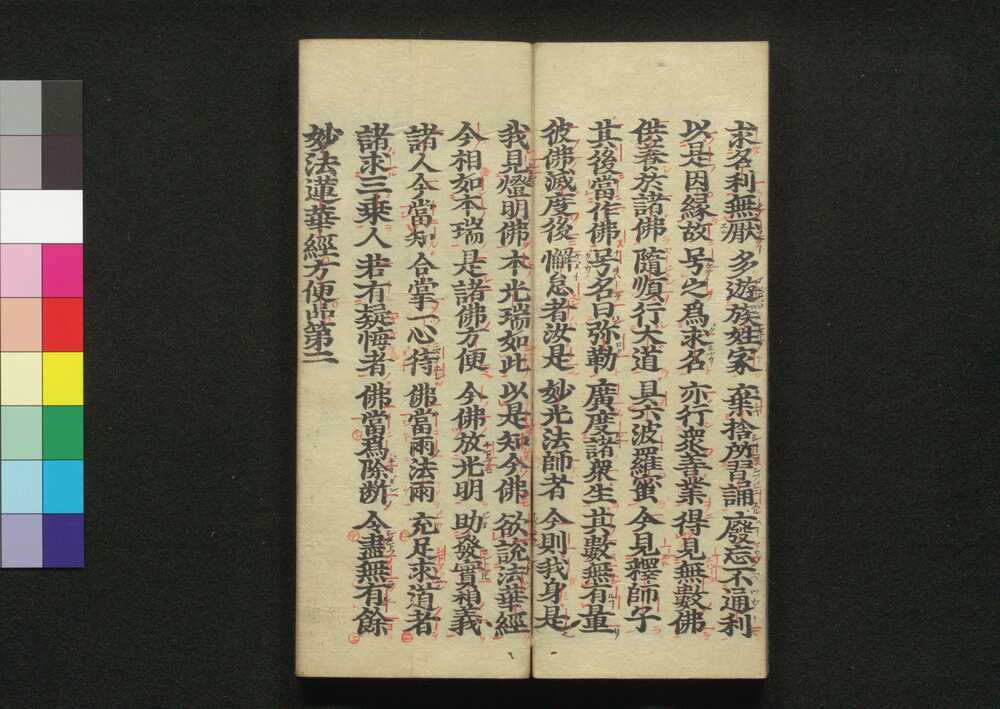 求名利無厭 多遊族姓家 棄捨所習誦 廢忘不通利
以是因縁故 号之為求名 亦行衆善業 得見無數佛
供養於諸佛 隨順行大道 具六波羅蜜 今見釋師子
其後當作佛 号名曰弥勒 廣度諸衆生 其數無有量
彼佛滅度後 懈怠者汝是 妙光法師者 今則我身是
我見燈明佛 本光瑞如此 以是知今佛 欲説法華經
今相如本瑞 是諸佛方便 今佛放光明 助發實相義
諸人今當知 合掌一心待 佛當雨法雨 充足求道者
諸求三乗人 若有疑悔者 佛當為除断 令盡無有餘
妙法蓮華經方便品第二